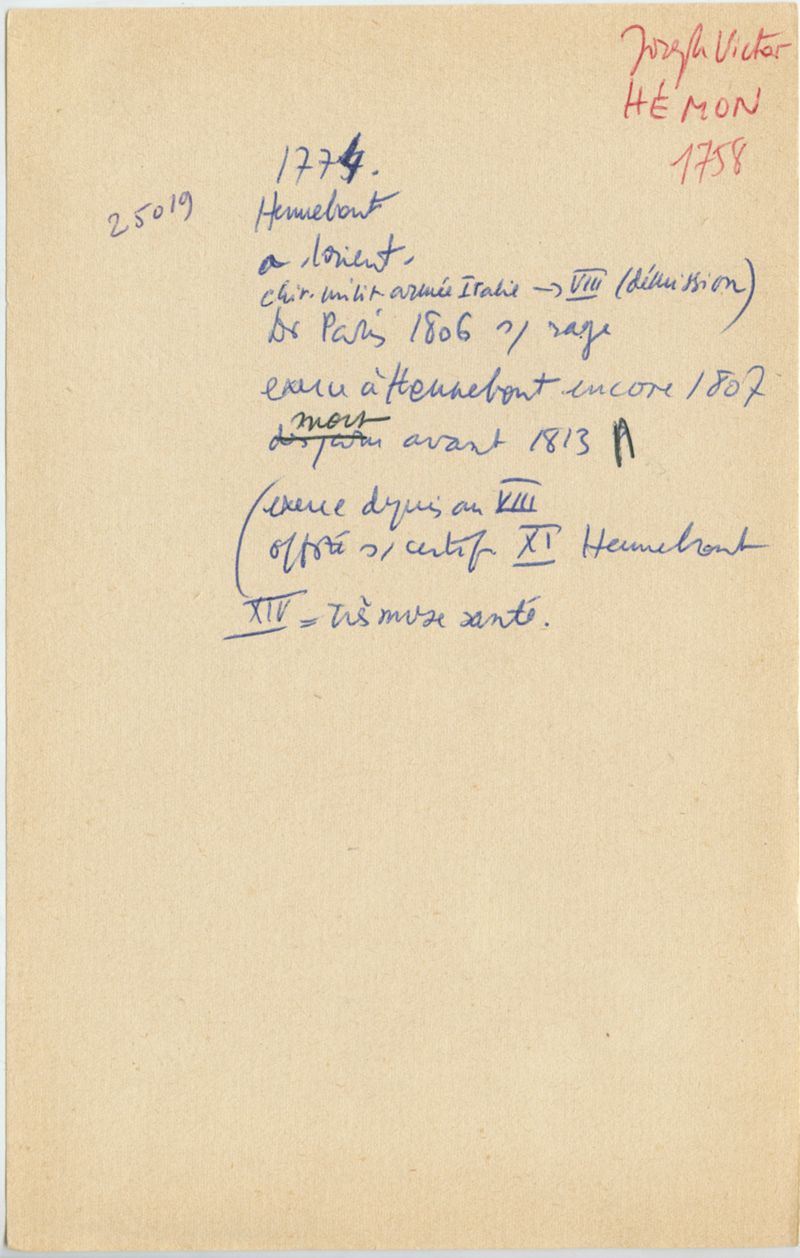 Joseph Victor
HÉMON
1758
1774.
25019
Hennebont
a Lorient.
chir. milit. armée Italie → VIII (démission)
Dr Paris 1806 s/ rage
exerce à Hennebont encore 1807
mort
avant 1813
(exerce depuis an VIII
s/ certif XI Hennebont
XIV = Très muse santé.